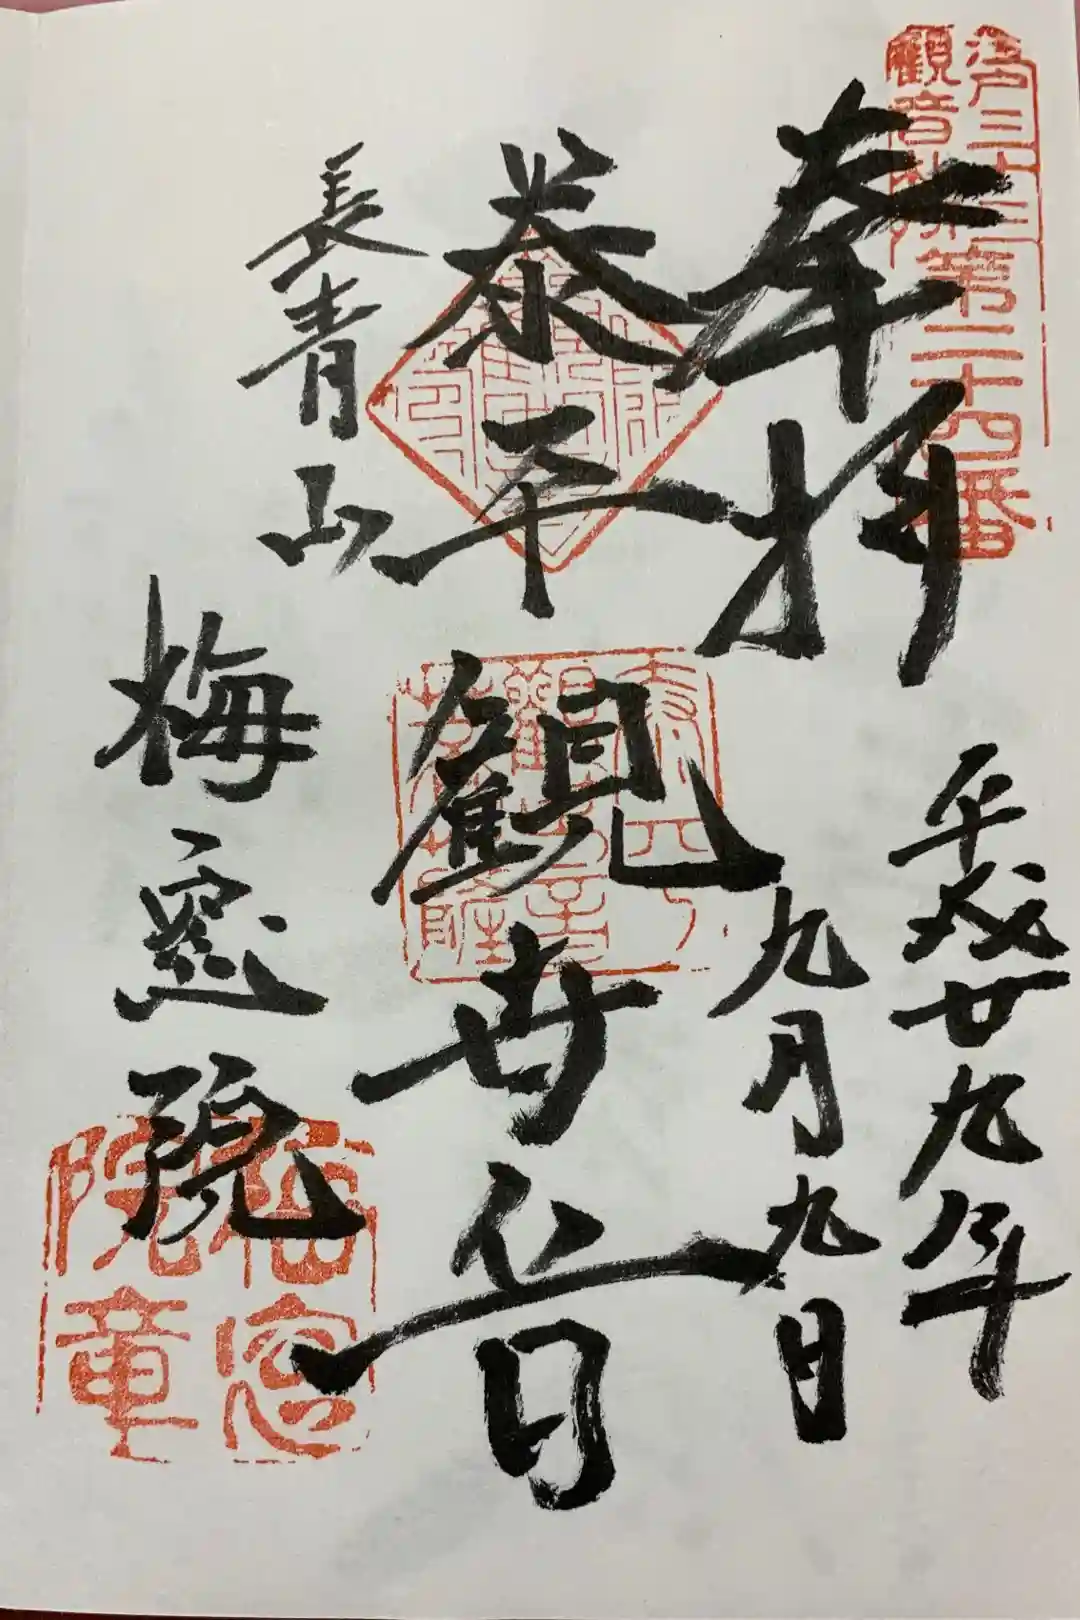 江戸三十三
観音札所第二十四番
奉拝
平成廿九年
九月九日
泰平観世音
長青山
梅窓院
梅窓
院章